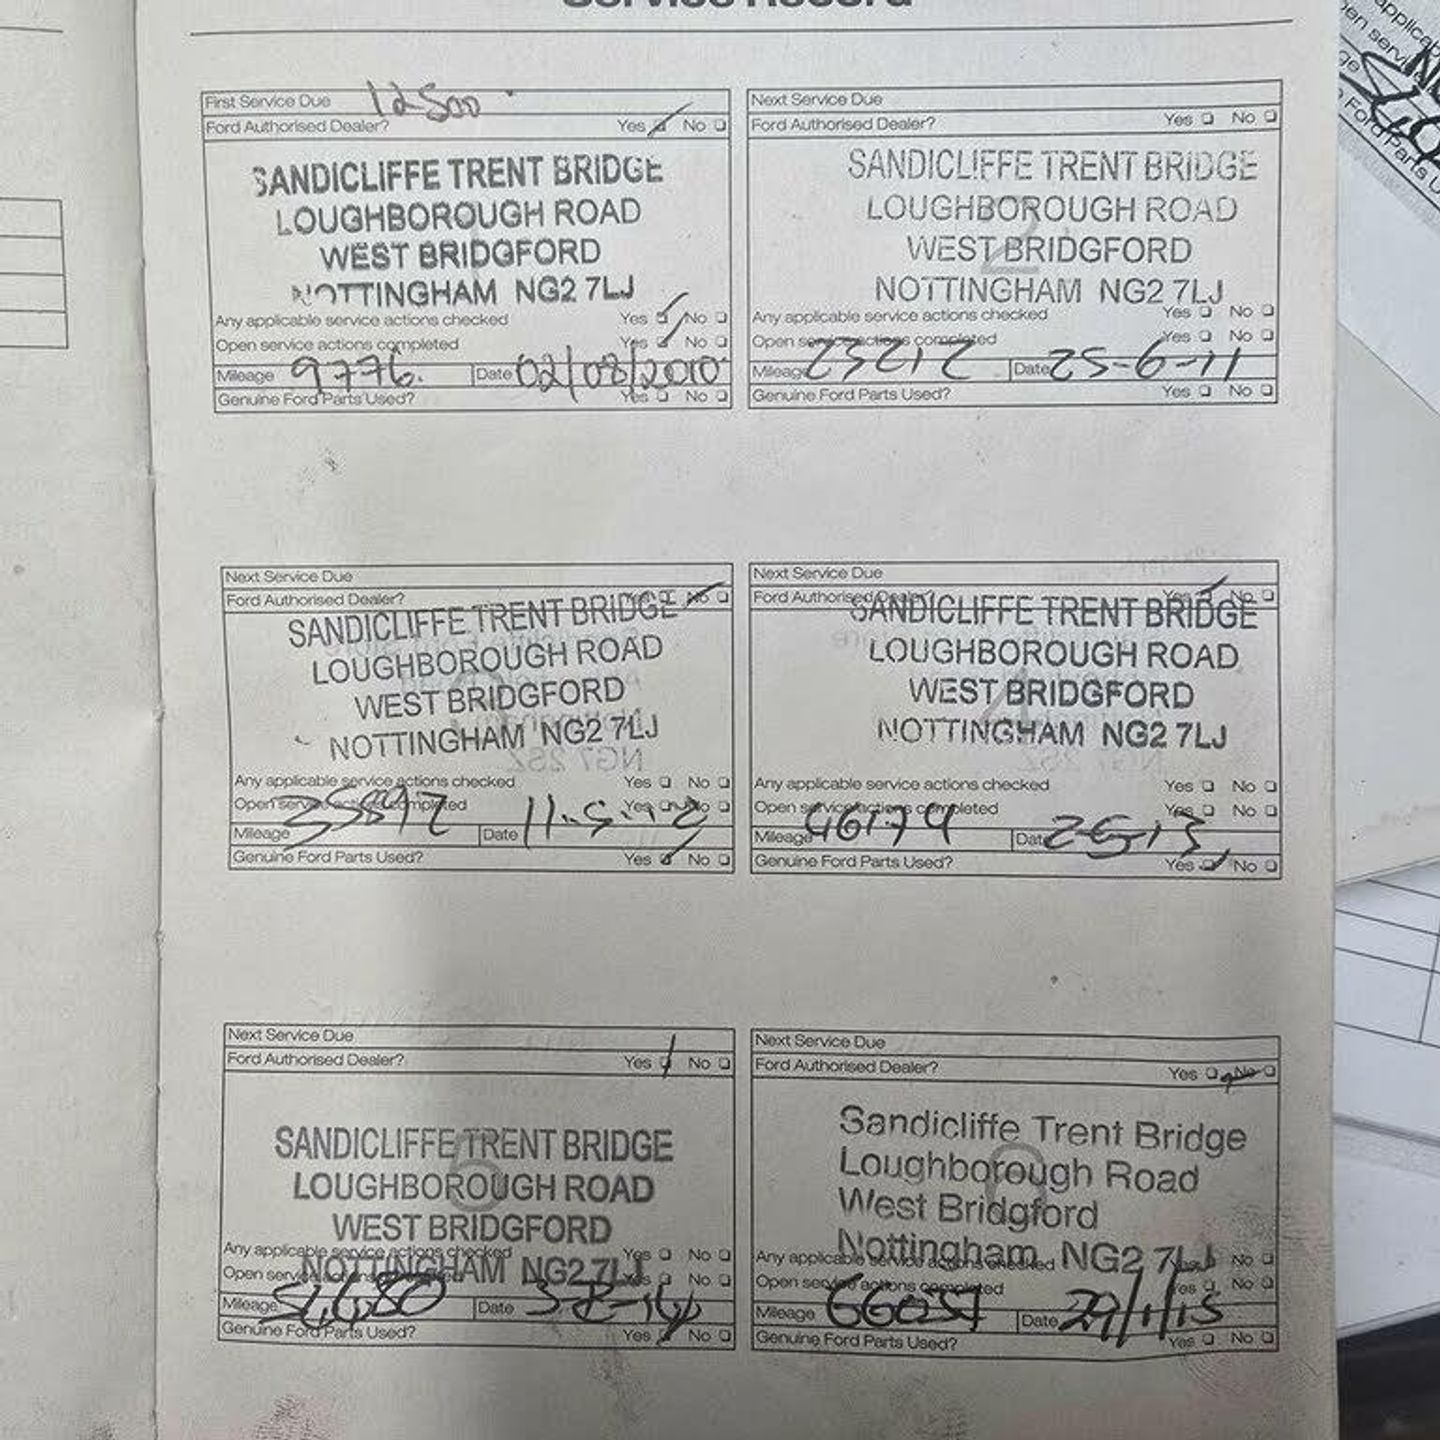 Service Record
First Service Due 12500
Ford Authorised Dealer? Yes No
SANDICLIFFE TRENT BRIDGE
LOUGHBOROUGH ROAD
WEST BRIDGFORD
NOTTINGHAM NG2 7LJ
Any applicable service actions checked Yes No
Open service actions completed Yes No
Mileage 9776. Date 02/08/2010
Genuine Ford Parts Used? Yes No
Next Service Due
Ford Authorised Dealer? Yes No
SANDICLIFFE TRENT BRIDGE
LOUGHBOROUGH ROAD
2
WEST BRIDGFORD
NOTTINGHAM NG2 7LJ
Any applicable service actions checked Yes No
Open service actions completed Yes No
Mileage 23212 Date 25-6-11
Genuine Ford Parts Used? Yes No
Next Service Due
Ford Authorised Dealer? Yes No
SANDICLIFFE TRENT BRIDGE
LOUGHBOROUGH ROAD
WEST BRIDGFORD
NOTTINGHAM NG2 7LJ
Any applicable service actions checked Yes No
Open service actions completed Yes No
Mileage 35892 Date 11.5.12
Genuine Ford Parts Used? Yes No
Next Service Due
Ford Authorised Dealer? Yes No
SANDICLIFFE TRENT BRIDGE
LOUGHBOROUGH ROAD
WEST BRIDGFORD
4
NOTTINGHAM NG2 7LJ
Any applicable service actions checked Yes No
Open service actions completed Yes No
Mileage 46174 Date
Genuine Ford Parts Used? Yes No
Next Service Due
Ford Authorised Dealer? Yes No
SANDICLIFFE TRENT BRIDGE
5
LOUGHBOROUGH ROAD
WEST BRIDGFORD
NOTTINGHAM NG2 7LJ
Any applicable service actions checked Yes No
Open service actions completed Yes No
Mileage Date
Genuine Ford Parts Used? Yes No
Next Service Due
Ford Authorised Dealer? Yes No
Sandicliffe Trent Bridge
Loughborough Road
West Bridgford
Nottingham NG2 7LJ
Any applicable service actions checked Yes No
Open service actions completed Yes No
Mileage Date 29/1/15
Genuine Ford Parts Used? Yes No